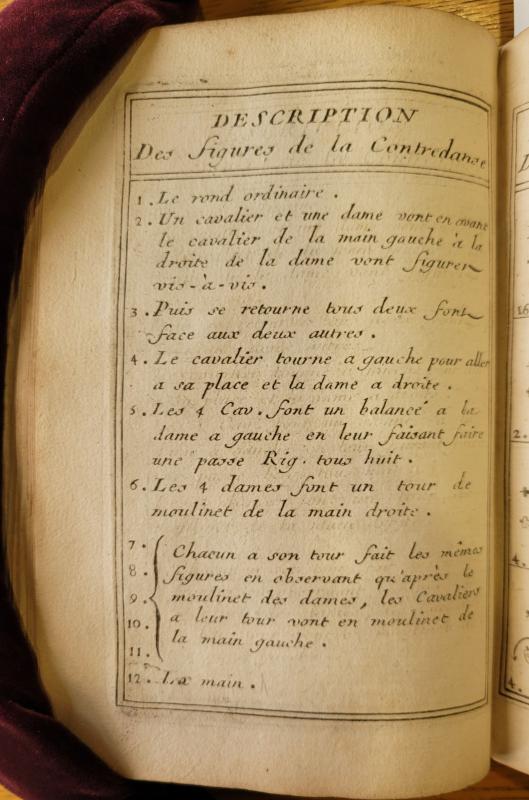 DESCRIPTION
Des figures de la Contredanse
1. Le rond ordinaire.
2. Un cavalier et une dame vont en avant
le cavalier de la main gauche à la
droite de la dame vont figurer
vis-à-vis.
3. Puis se retourne tous deux font
face aux deux autres.
4. Le cavalier tourne a gauche pour aller
a sa place et la dame a droite.
5. Les 4 Cav. font un balancé a la
dame a gauche en leur faisant faire
une passe Rig. tous huit.
6. Les 4 dames font un tour de
moulinet de la main droite.
7. Chacun a son tour fait les mêmes
8. figures en observant qu'après le
9. moulinet des dames, les Cavaliers
10. a leur tour vont en moulinet de
11. la main gauche.
12. La main.